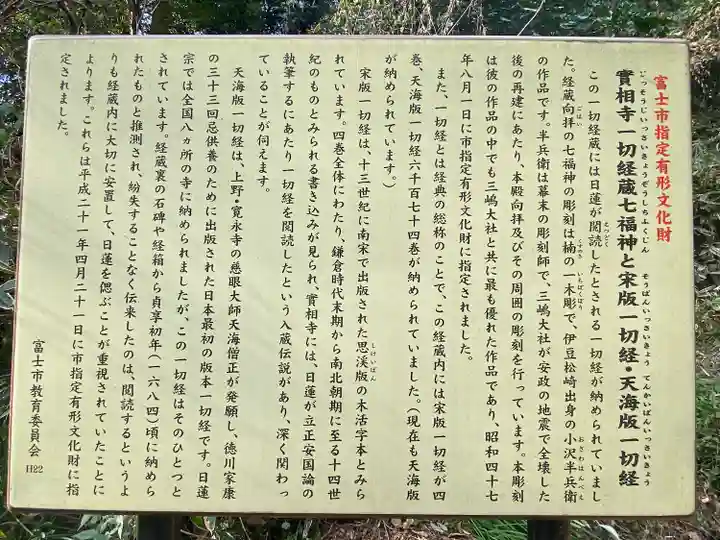 富士市指定有形文化財
實相寺一切経蔵七福神と宋版一切経・天海版一切経
じっそうじいっさいきょうぞうしちふくじん そうばんいっさいきょう てんかいばんいっさいきょう
この一切経蔵には日蓮が閲読したとされる一切経が納められていまし
えつどく
た。経蔵向拝の七福神の彫刻は楠の一木彫で、伊豆松崎出身の小沢半兵衛
ごはい くすのき いちぼくぼり おざわはんべえ
の作品です。半兵衛は幕末の彫刻師で、三嶋大社が安政の地震で全壊した
後の再建にあたり、本殿向拝及びその周囲の彫刻を行っています。本彫刻
は彼の作品の中でも三嶋大社と共に最も優れた作品であり、昭和四十七
年八月一日に市指定有形文化財に指定されました。
また、一切経とは経典の総称のことで、この経蔵内には宋版一切経が四
巻、天海版一切経六千百七十四巻が納められていました。(現在も天海版
が納められています。)
宋版一切経は、十三世紀に南宋で出版された思溪版の木活字本とみら
しけいばん
れています。四巻全体にわたり、鎌倉時代末期から南北朝期に至る十四世
紀のものとみられる書き込みが見られ、實相寺には、日蓮が立正安国論の
執筆するにあたり一切経を閲読したという入蔵伝説があり、深く関わっ
ていることが伺えます。
天海版一切経は、上野・寛永寺の慈眼大師天海僧正が発願し、徳川家康
の三十三回忌供養のために出版された日本最初の版本一切経です。日蓮
宗では全国八ヵ所の寺に納められましたが、この一切経はそのひとつと
されています。経蔵裏の石碑や経箱から貞享初年(一六八四)頃に納めら
れたものと推測され、紛失することなく伝来したのは、閲読するというよ
りも経蔵内に大切に安置して、日蓮を偲ぶことが重視されていたことに
よります。これらは平成二十一年四月二十一日に市指定有形文化財に指
定されました。
富士市教育委員会 H22